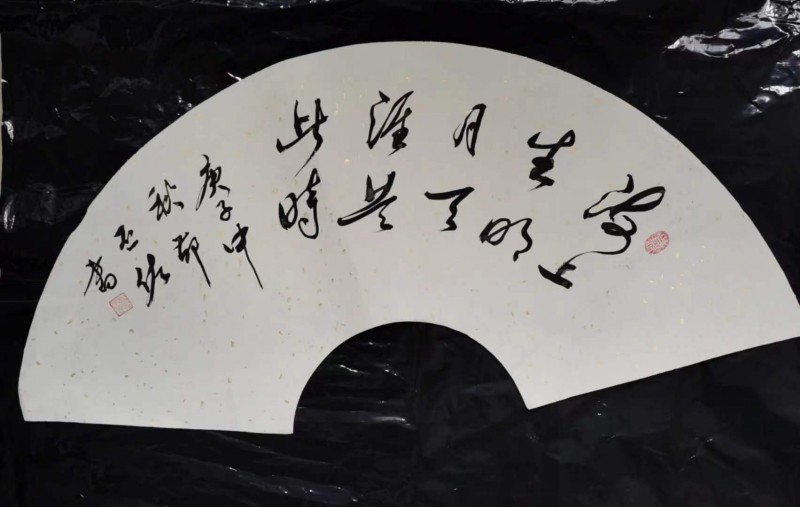 海上
生明
月天
涯共
此時
庚子中
秋
書